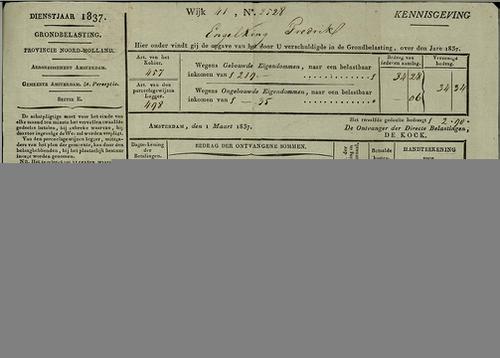 DIENSTJAAR 1837.
GRONDBELASTING.
PROVINCIE NOORD-HOLLAND.
ARRONDISSEMENT AMSTERDAM.
GEMEENTE AMSTERDAM, 5e. Perceptie.
SECTIE E.
De schatpligtige moet voor het einde van
elke maand ten minste het vervallen twaalfde
gedeelte betalen, bij gebreke waarvan, hij
daartoe ingevolge de Wet zal worden verpligt.
Van deze perceelsgewijze legger, mitsga-
ders van het plan der gemeente, kan door den
belanghebbenden, bij het plaatselijk bestuur
inzage worden genomen.
Wijk 41, No. 2528
KENNISGEVING
Engelking Fredrik
Hier onder vindt gij de opgave van het door U verschuldigde in de Grondbelasting, over den Jare 1837.
Art. van het Kohier.
457
Art. van den perceelsgewijzen Legger.
498
Wegens Gebouwde Eigendommen, naar een belastbaar
inkomen van f 219.-
Wegens Ongebouwde Eigendommen, naar een belastbaar
inkomen van f -35
Bedrag van iederen aanslag.
Vereenigd bedrag.
34 28
- 06
34 34
AMSTERDAM, den 1 Maart 1837.
Het twaalfde gedeelte bedraagt f 2.90
De Ontvanger der Directe Belastingen,
DE KOCK.
Dagteekening der Betalingen.
BEDRAG DER ONTVANGENE SOMMEN.
HANDTEEKENING